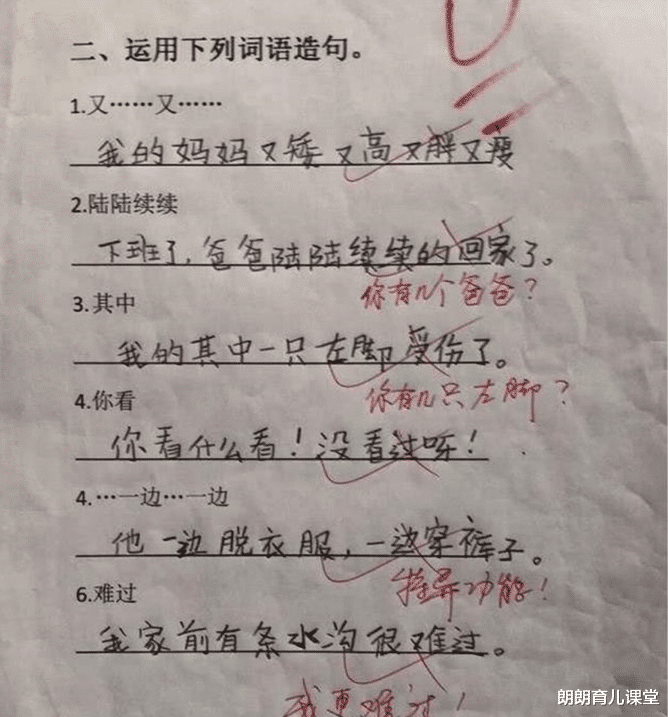 二、运用下列词语造句。
1.又……又……
我的妈妈又矮又高又胖又瘦
2.陆陆续续
下班了,爸爸陆陆续续的回家了。
你有几个爸爸?
3.其中
我的其中一只左脚受伤了。
你有几只左脚?
4.你看
你看什么看!没看过呀!
4.…一边…一边
他一边脱衣服,一边穿裤子。
特异功能!
6.难过
我家前有条水沟很难过。
我更难过!
朗朗育儿课堂